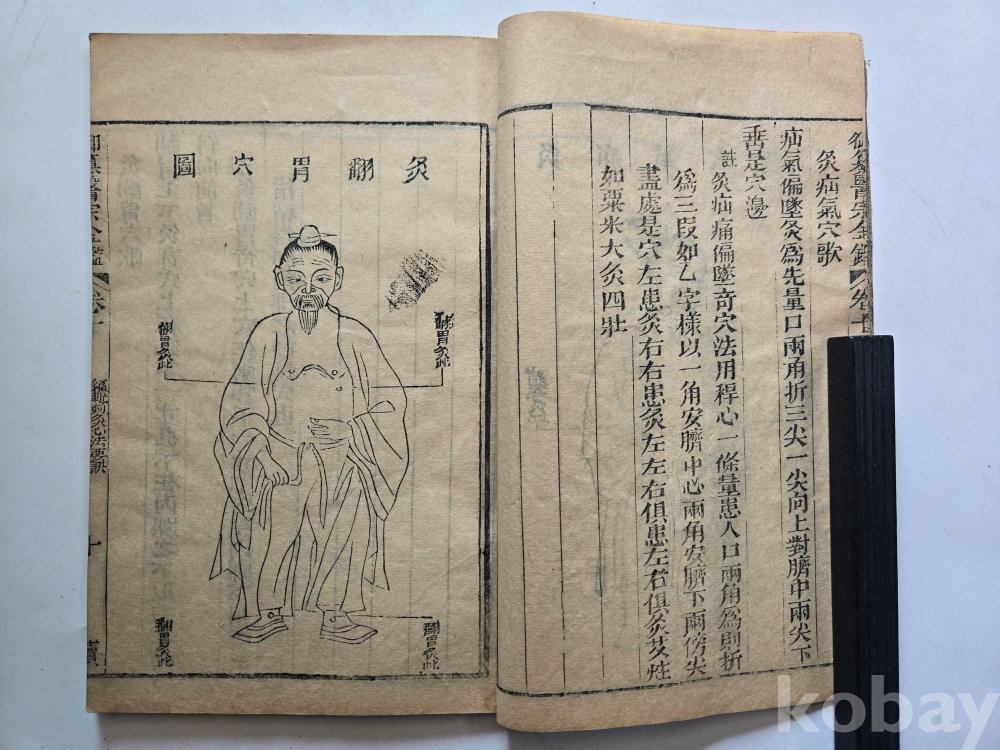 灸疝氣穴歌
疝氣偏墜灸爲先量口兩角折三尖一尖向上對臍中兩尖下
垂是穴邊
註 灸疝痛偏墜奇穴法用稈心一條量患人口兩角爲則折
爲三段如乙字樣以一角安臍中心兩角安臍下兩傍尖
盡處是穴左患灸右右患灸左左右俱患左右俱灸艾炷
如粟米大灸四壯
灸翻胃穴圖
翻胃灸此
翻胃灸此
翻胃灸此
翻胃灸此
編輯刺灸心法要訣
kobay